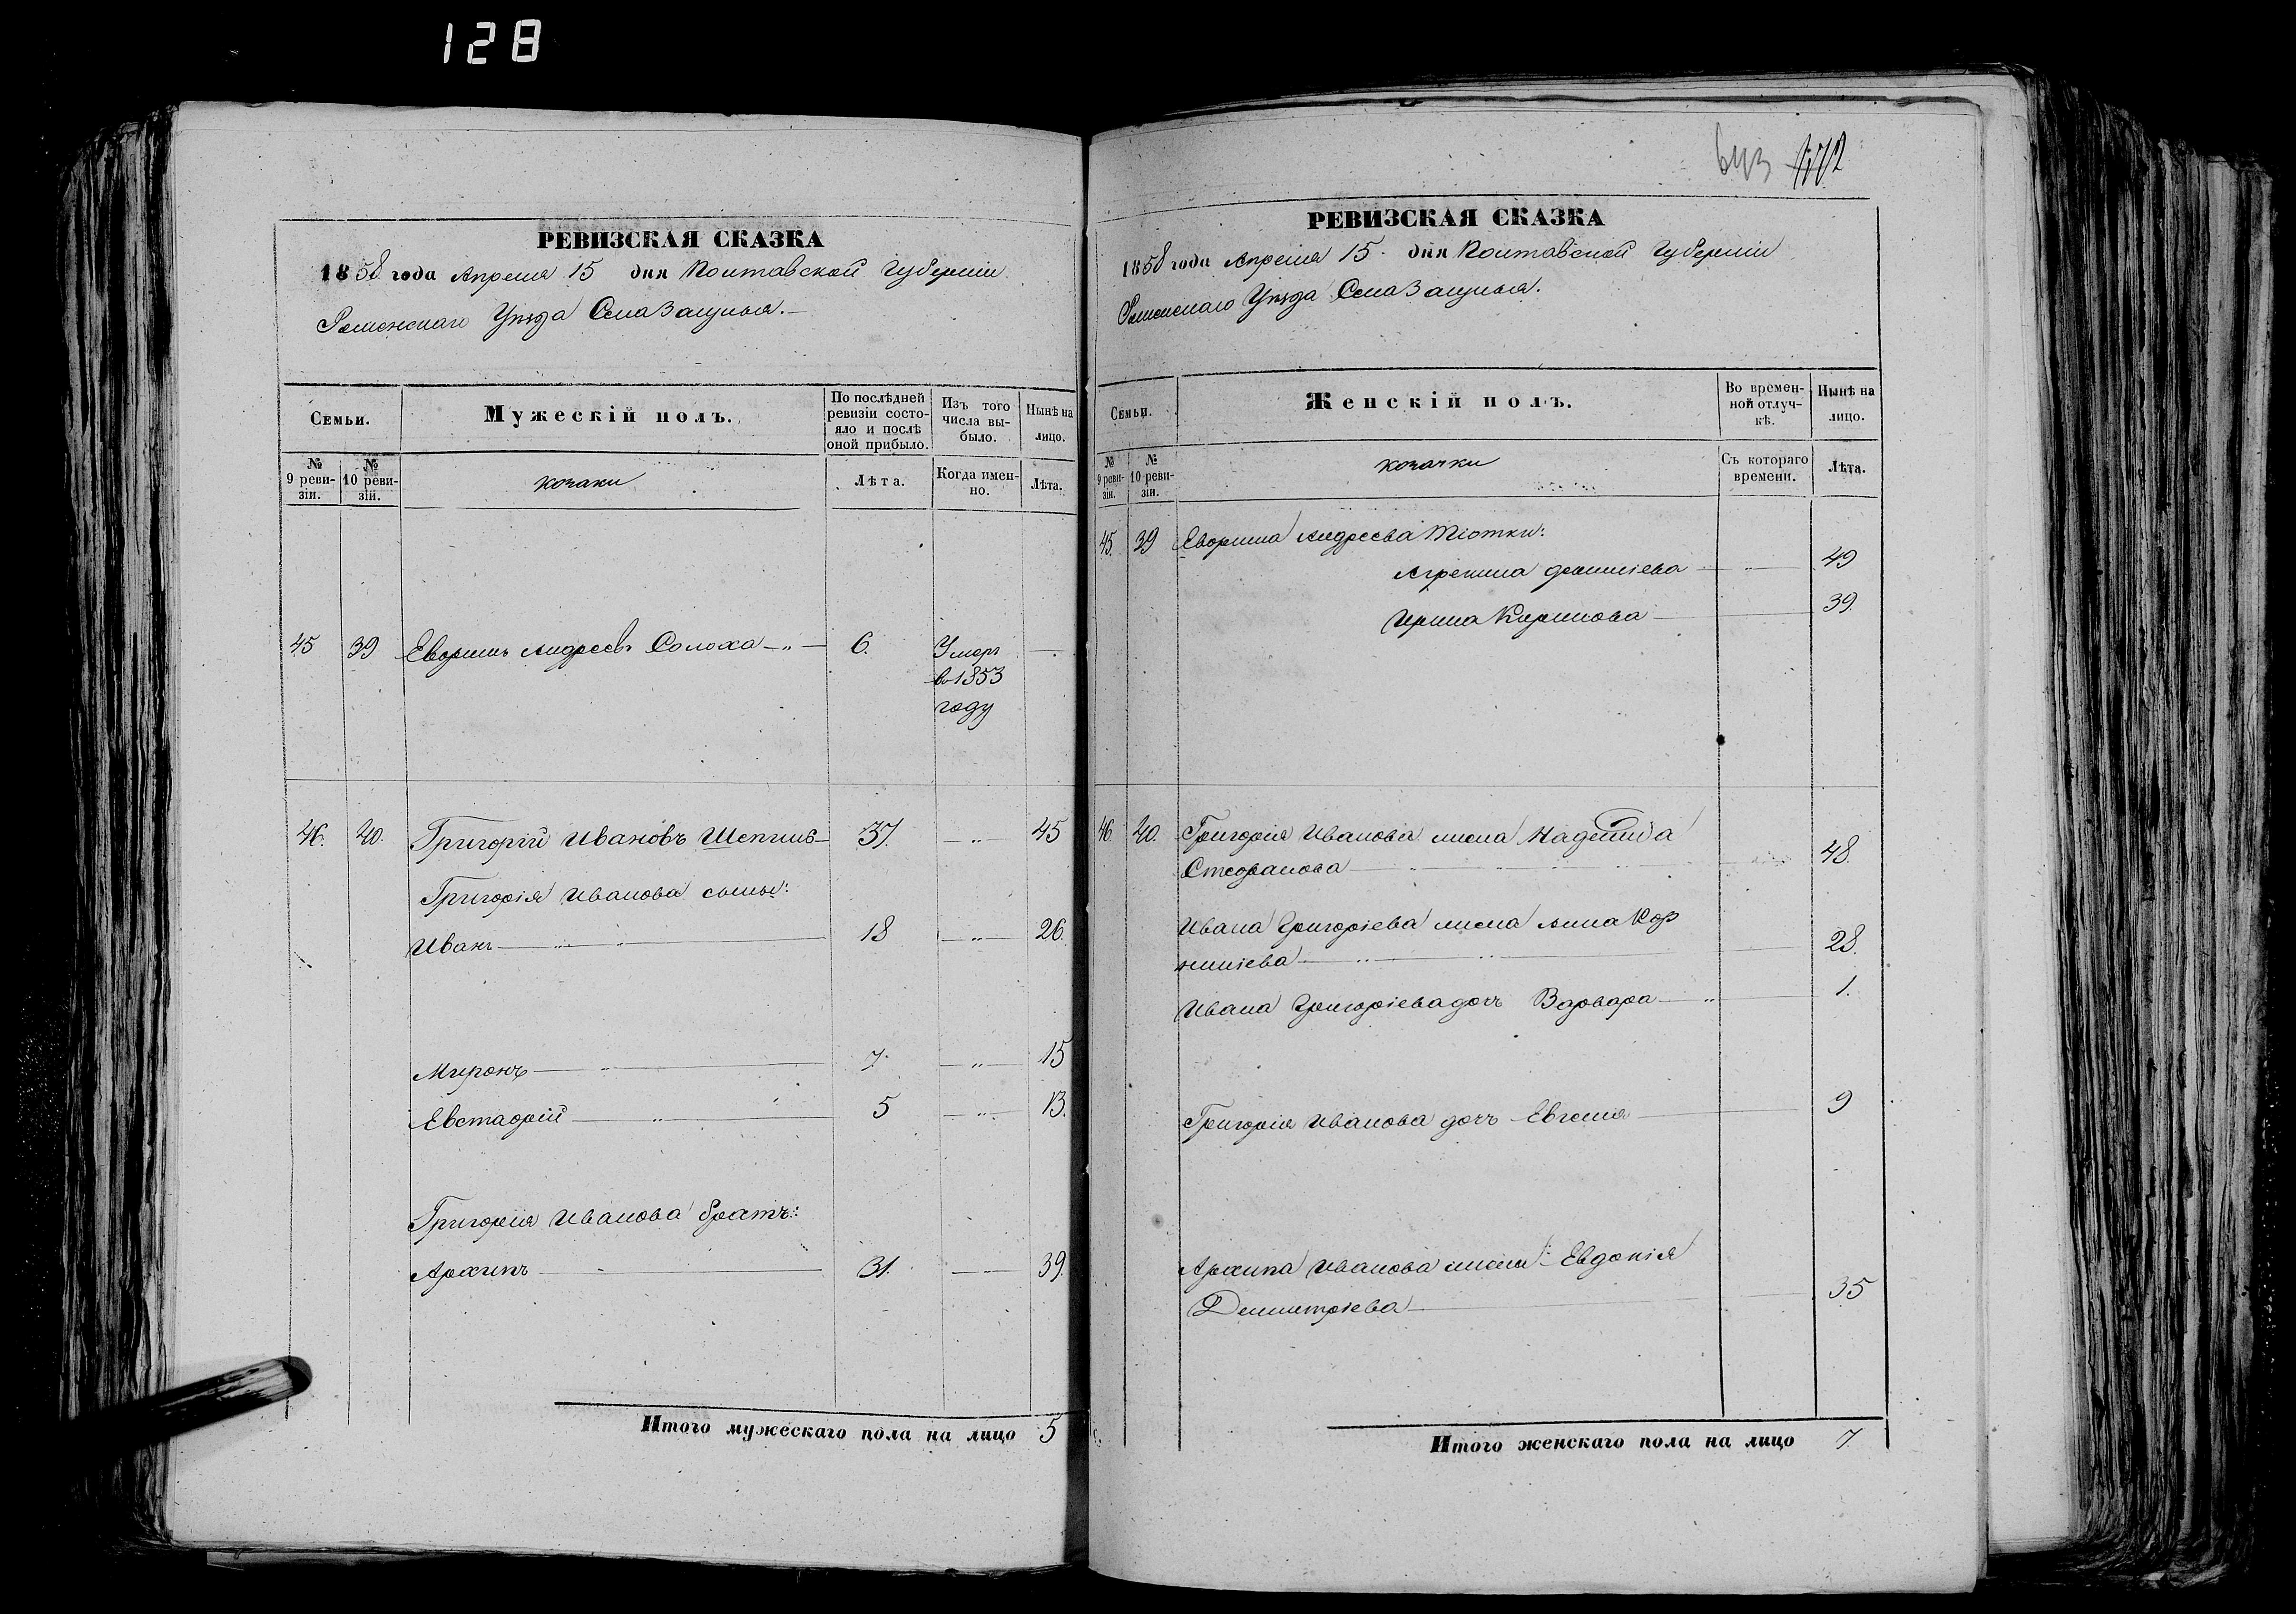 128
РЕВИЗСКАЯ СКАЗКА
1858 года Апреля 15 дня Полтавской Губернии
Роменскаго Уѣзда Села
Семьи.
Мужескій полъ.
По послѣдней ревизіи состояло и послѣ оной прибыло.
Изъ того числа выбыло.
Нынѣ на лицо.
№ 9 ревизіи.
№ 10 ревизіи.
козаки
Лѣта.
Когда именно.
Лѣта.
45 39 Андреевъ Солоха 6. Умеръ
в 1853
году
46. 40. Григорій Ивановъ 37. 45
Григорія Иванова сыны:
Иванъ 18 26.
Миронъ 7. 15
Евстафій 5 13.
Григорія Иванова братъ:
Архипъ 31. 39.
Итого мужескаго пола на лицо 5
643
РЕВИЗСКАЯ СКАЗКА
1858 года Апреля 15 дня Полтавской Губернии
Роменскаго Уѣзда Села
Семьи.
Женскій полъ.
Во временной отлучкѣ.
Нынѣ на лицо.
№ 9 ревизіи.
№ 10 ревизіи.
козачки
Съ котораго времени.
Лѣта.
45. 39 Андреева тіотки:
49
Ирина 39.
46. 40. Григорія Иванова жена Надежда
Стефанова 48.
Ивана Григоріева жена Анна Кор
ниліева 28.
Ивана Григоріева дочь Варвара 1.
Григорія Иванова дочь Евгенія 9
Архипа Иванова жена Евдокія
Димитріева 35
Итого женскаго пола на лицо 7.